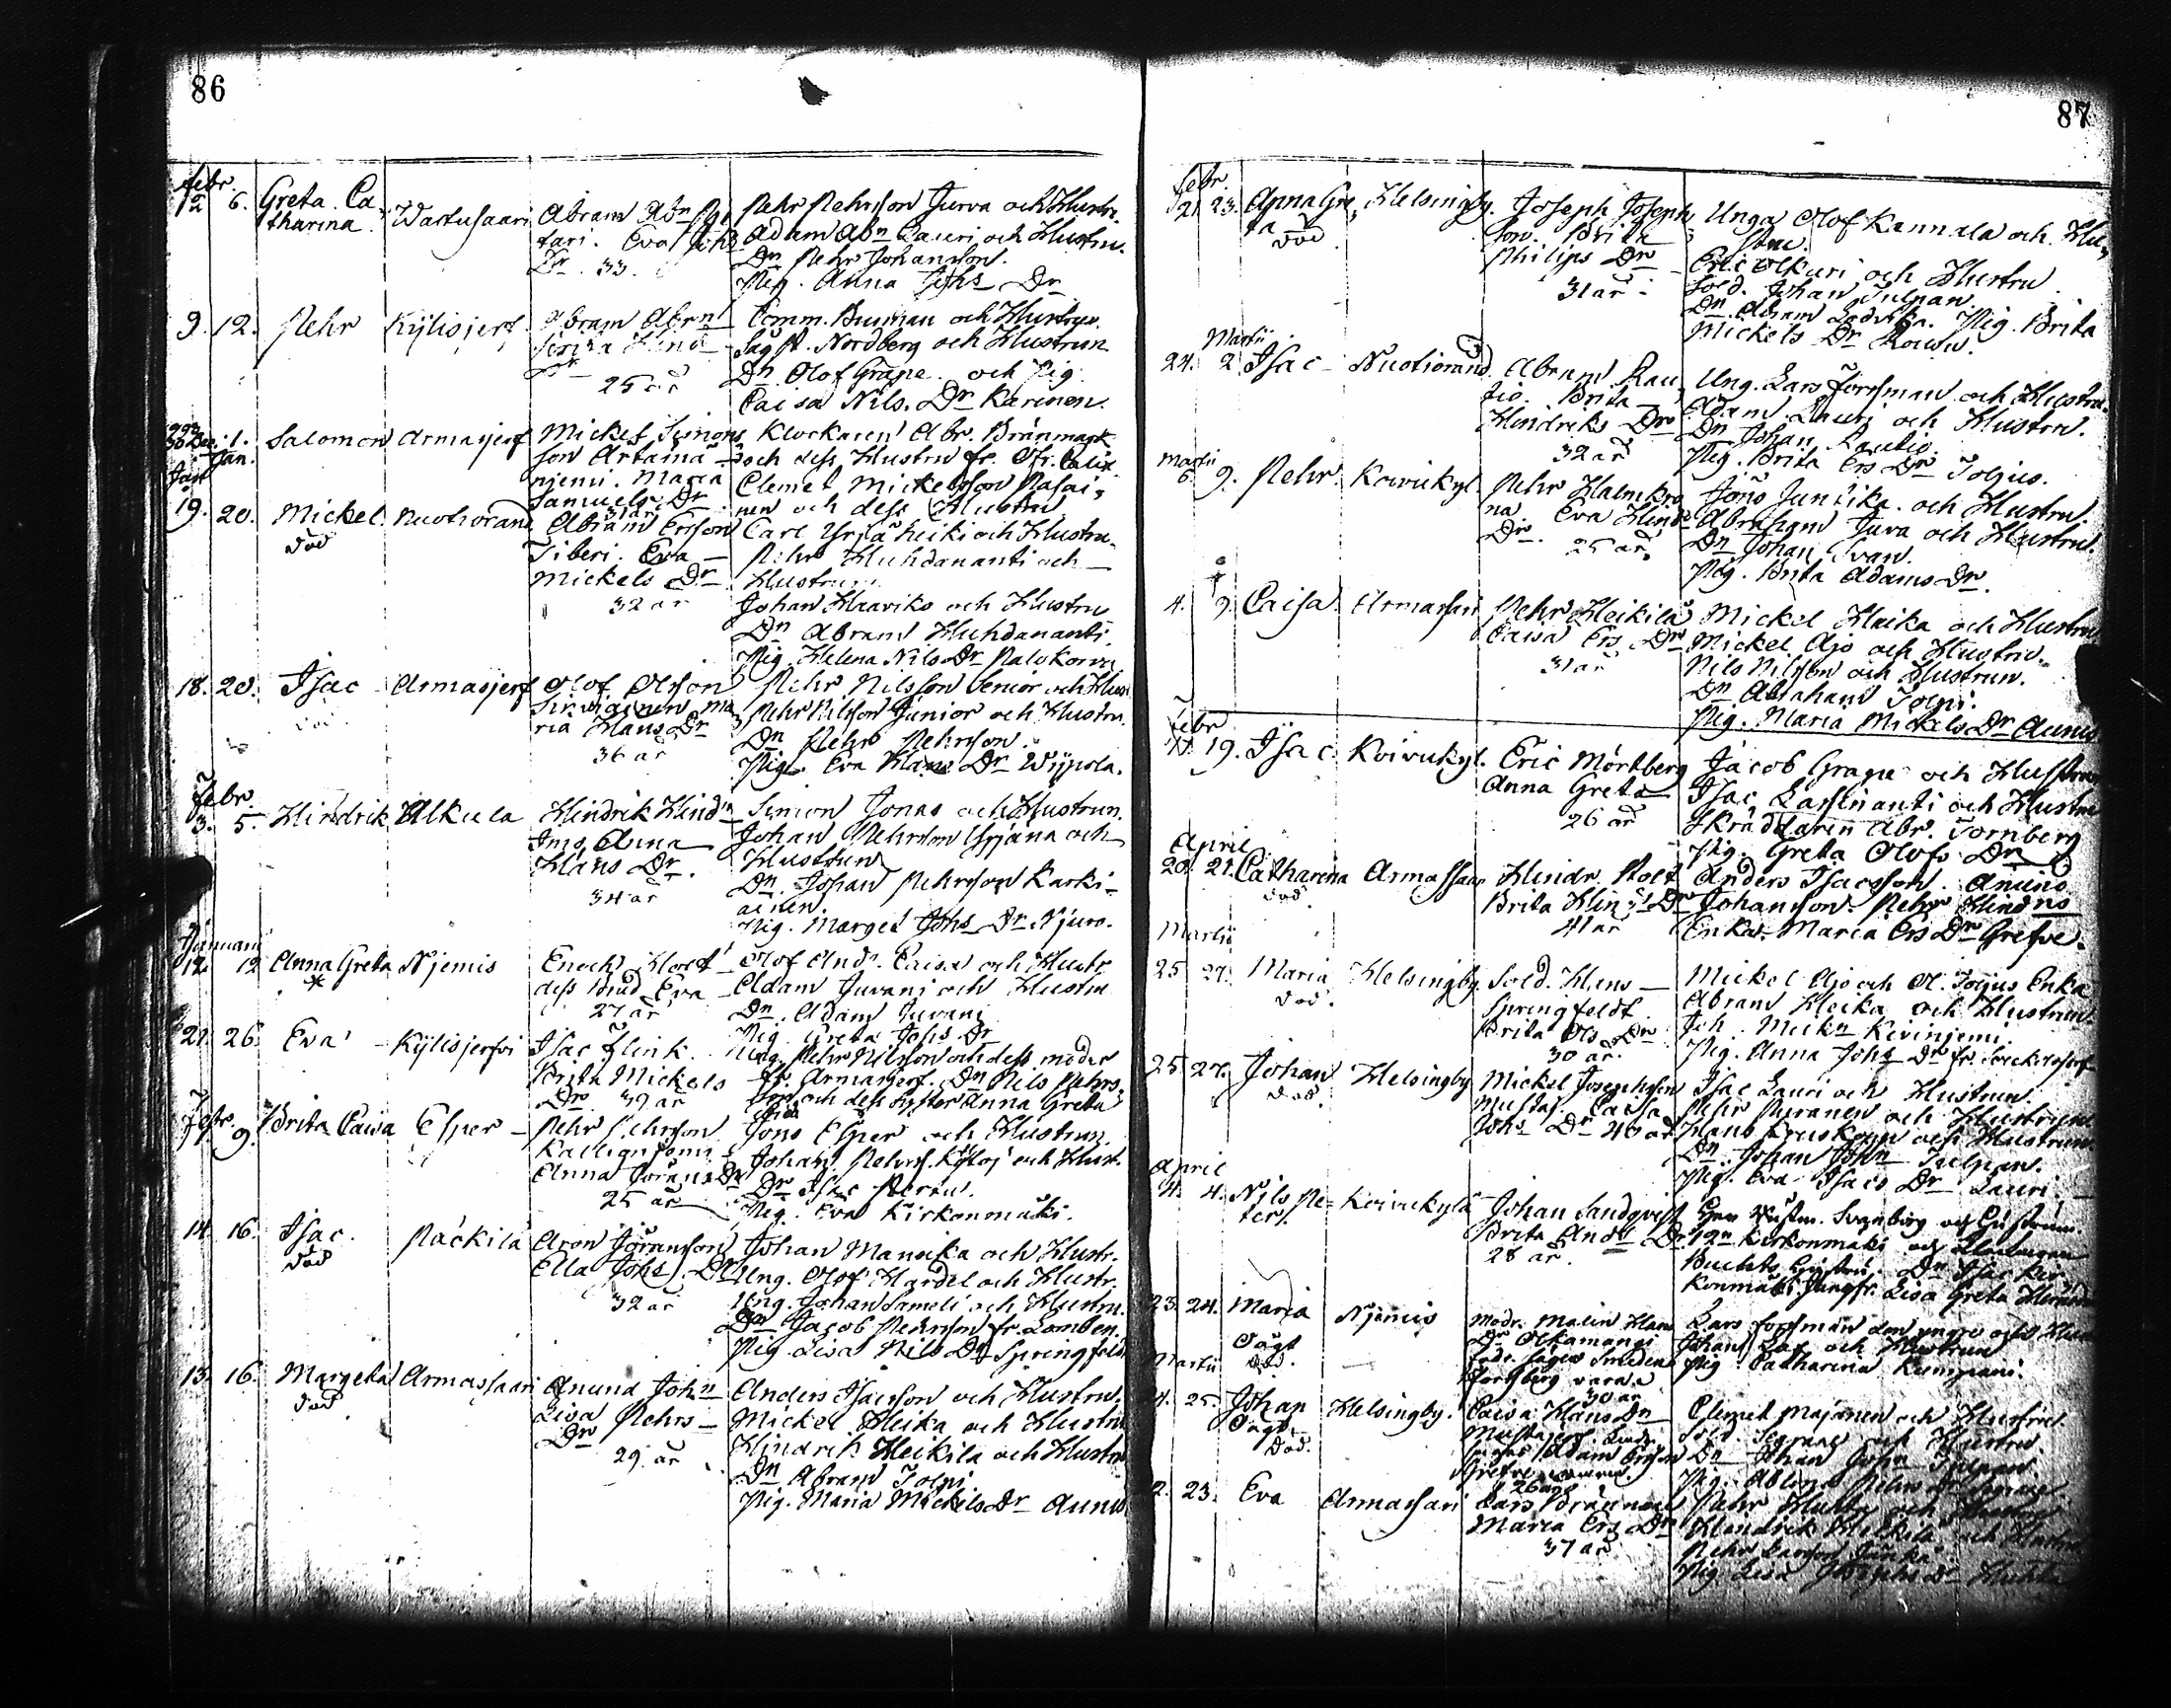 86
febr.
12 6. Greta Ca-
tharina Wartusaari Abram Abn
tari. Eva Johs
Dr. 33.
Pehr Pehrsson Jurva och Hustru.
Adam Abn Lauri och Hustru.
Dn Pehr Johansson.
Pig. Anna Johs Dr
9. 12. Pehr Kylisjerf Abram Abrn
Dr
25 år
Comm. Burman och Hustrun.
Nordberg och Hustrun
Dn Olof Grape och Pig.
Caisa Nils Dr Karinen.
30 Dec. 1.
Jan.
Salomon Armasjerf Mickel Simons
son Artaina
njemi. Maria
Samuels Dr
31 år
Klockaren Abr. Brännmark
och dess Hustru fr. Öfr. Calix
Clemet Mickelsson Pasai-
nen och dess Hustru
Jan
19. 20. Mickel Nuotiorand
död
Abram Ersson
Tiberi. Eva
Mickels Dr
32 år
Carl Yrjäheiki och Hustru.
Pehr Huhdananti och
Hustrun
Johan Haaviko och Hustru
Dn Abram Huhdananti
Pig. Helena Nils Dr Palokorva
18. 20. Isac Armasjerf
Olof Olsson
Ma
ria Hans Dr
36 år
Pehr Nilsson Senior och Hust.
Pehr Nilsson Junior och Hustru.
Dn Pehr Pehrsson.
Pig. Eva Hans Dr Wijpola.
Febr.
3. 5. Hindrik Alkula
Hindrik Hindn
Anna
Hans Dr.
34 år
Simon Jonas och Hustrun.
Johan Pehrsson Yrjana och
Hustrun
Dn. Johan Pehrsson Karki-
ainen.
Pig. Margeta Johs Dr Njuro.
Januari
12. 12 Anna Greta Njemis
Enoch
dess Brud Eva
27 år
Olof And. Caisa och Hustr
Adam Juvani och Hustru
Dn. Adam Juvani
Pig. Greta Johs Dr
21. 26. Eva Kylisjerfvi
Isac Flink.
Brita Mickels
Dr 39 år
Ung. Pehr Nilsson och dess moder
fr. Armasjerf. Dn Nils Pehrs-
son och dess syster Anna Greta
Febr. 9. Brita Caisa Esper
Pehr Pehrsson
Anna Görans Dr
25 år
Jöns Esper och Hustrun.
Johan Pehrss. och Hust.
Dn Isac
Pig. Eva Kirkonmäki.
14. 16. Isac. Päckilä
död
Aron Göransson
Ella Johs Dr
32 år
Johan Mansika och Hustr.
Ung. Olof Hardel och Hustr.
Ung. Johan Sameli och Hustru.
Dn Jacob Pehrsson fr. Lomben.
Pig. Lisa Nils Dr Springfeldt
13. 16. Margeta Armassaari
död
Anund John
Lisa Pehrs
Dr
29 år
Anders Isacsson och Hustru.
Mickel Heika och Hustru
Hindrik Heikilä och Hustru
Dn Abram Tolpi
Pig. Maria Mickels Dr Aunis
87
febr.
21. 23. Anna Gre-
ta
död
Helsingby. Joseph Joseph
son. Brita
Philips Dr
31 år
Unga Olof Kannala och Hu-
stru.
Eric Olkuri och Hustru
Sold. Johan Tulpan.
Dn. Abram Pig. Brita
Mickels Dr
Martii
24. 2 Isac Nuotiorand
Abram Rau-
tio. Brita
Hindriks Dr
32 år
Ung. Lars Forssman och Hustru.
Adam Lauri och Hustru.
Dn Johan Rautio.
Pig. Brita Ers Dr Toljus.
Martii
6. 9. Pehr Koivukyl.
Pehr Halmkro
na. Eva Hind
Dr. 25 år.
Jöns Juntika och Hustru
Abraham Juva och Hustru.
Dn Johan Ivan.
Pig. Brita Adams Dr.
4. 9. Caisa. Armassari
Pehr Heikilä
Caisa Ers Dr
31 år
Mickel Heika och Hustru
Mickel Ajo och Hustru.
Nils Nilsson och Hustrun.
Dn. Abraham Tolpi.
Pig. Maria Mickels Dr Aunis
Febr
17. 19. Isac Koivukyl.
Eric Mörtberg
Anna Greta
26 år
Jacob Grape och Hustru
Isac Lassinanti och Hustru
Skräddaren Abr. Tornberg
Pig. Greta Olofs Dr
April
20. 21. Catharina Armassaar
död.
Hindr. Stolt
Brita Hin Dr
41 år
Anders Isacsson. Anund
Johansson. Pehr Hindrs
Enka. Maria Ers Dr Grefve.
Martii
25 27. Maria Helsingby
död.
Sold. Hans
Springfeldt
Brita Ols Dr
30 år.
Mickel Ajo och Ol. Toljus Enka
Abram Heika och Hustrun.
Joh. Mickn Kivinjemi.
Pig. Anna Johs Dr fr.
25 27. Johan Helsingby
död.
Mickel Josephsson
Mustaj. Caisa
Johs Dr 40 år
Isac Lauri och Hustrun.
Pehr Puranen och Hustrun
Hans Kruskopp och Hustrun.
Dn. Johan John Tulpan.
Pig. Eva Isacs Dr Lauri
April
4. 4. Nils Pe-
ter.
Koivukylä Johan Sandqvist
Brita Ands Dr
28 år.
Kirkonmäki
Dn Isac Kir-
konmäki. Jungfr. Lisa Greta
23. 24. Maria Njemis
Oägt
död.
Modr. Malin Hans
Dr Olkamangi
Fadr. säges Smeden
Forsberg vara.
30 år
Lars Forssman den yngre och Hust
Johan och Hustrun
Pig. Catharina Kumpiani.
Martii
24. 25. Johan Helsingby.
Oägt.
död.
Caisa Hans Dr
säges Adam Ersson
Grefve vara.
26 år
Clemet Majanen och Hustru.
Sold. och Hustru
Dn Johan John Tulpan.
2. 23. Eva Armassari
Lars Brännvall
Maria Ers Dr
37 år
Pehr Huhta och Hustru
Hindrik Heikilä och Hustru
Pehr Larsson Junka
Pig. Lisa Josephs Dr Huhta